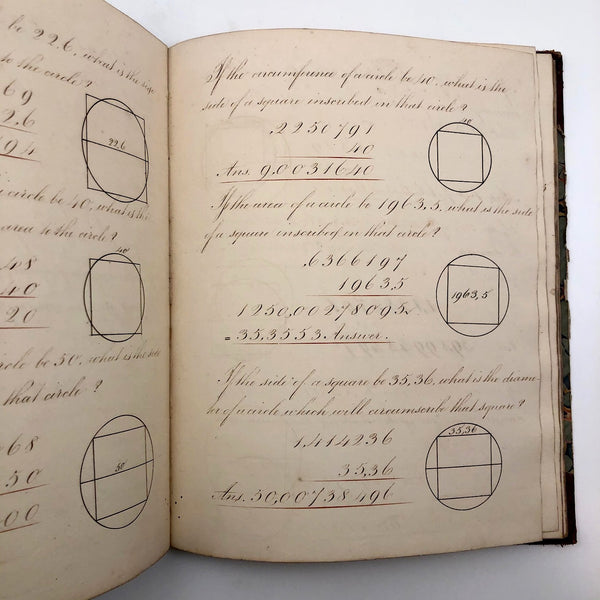 be 22,6, what is the side
to the circle?
69
2,6
94
22,6
circle be 40, what is the
area to the circle?
48
40
20
40
circle be 50, what is the
that circle?
68
50
00
50
If the circumference of a circle be 40, what is the
side of a square inscribed in that circle?
,2250791
40
Ans. 9,0031640
40
If the area of a circle be 1963,5, what is the side
of a square inscribed in that circle?
,6366197
1963,5
1250,00278095
= 35,3553 Answer.
1963,5
If the side of a square be 35,36, what is the diame-
ter of a circle which will circumscribe that square?
1,414236
35,36
Ans. 50,00738496
35,36